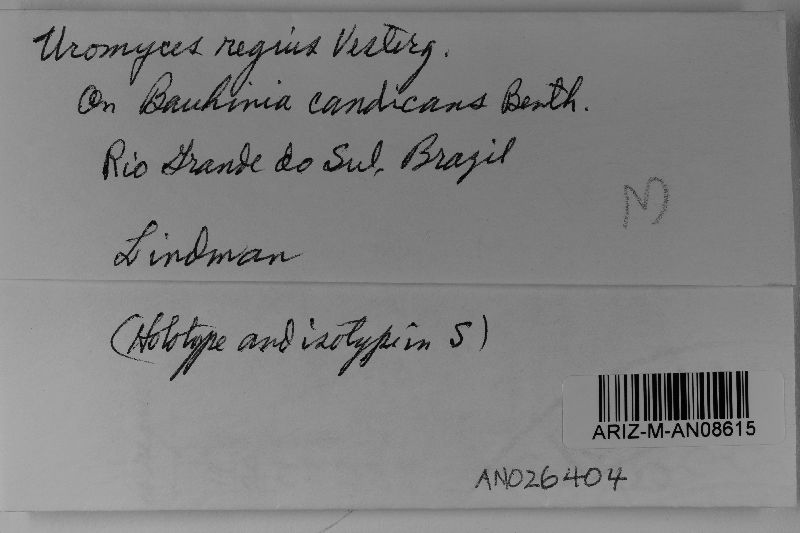 Uromyces regius Vesterg.
On Bauhinia candicans Benth.
Rio Grande do Sul, Brazil
Lindman
(Holotype and isotype in S)
ARIZ-M-AN08615
AN026404